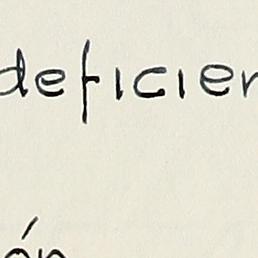 deficien
ón